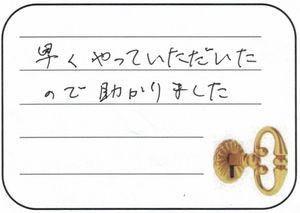 早くやっていただいた
ので助かりました